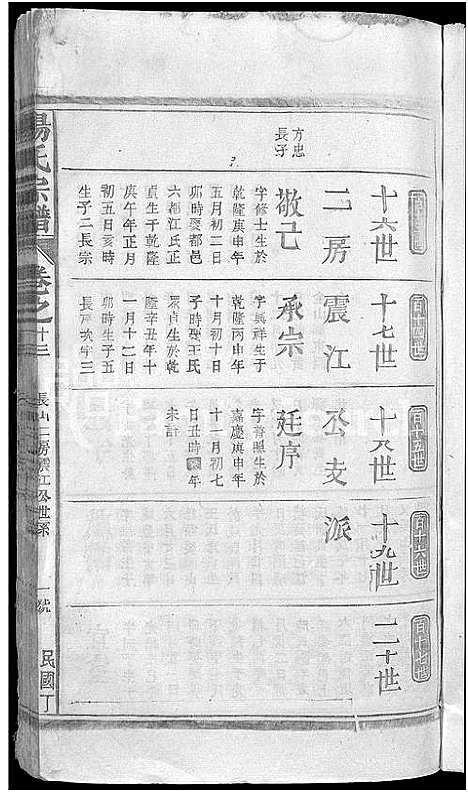 百十七世
十六世
十七世
十八世
十九世
二十世
二房
震江
公支
派
方忠
長子
敬己
字修士生於
乾隆庚申年
五月初二日
卯時娶都邑
六都江氏正
貞生于乾隆
庚午年正月
初五日亥時
生子二長宗
承宗
字興祥生于
乾隆丙申年
十月初十日
子時娶王氏
生於乾
隆辛丑年十
一月十二日
卯時生子五
長序次字三
廷序
字青照生於
嘉慶庚申年
十一月初七
日丑時年
未計
楊氏宗譜
卷之十三
長山二房震江公世系
一號
民國丁